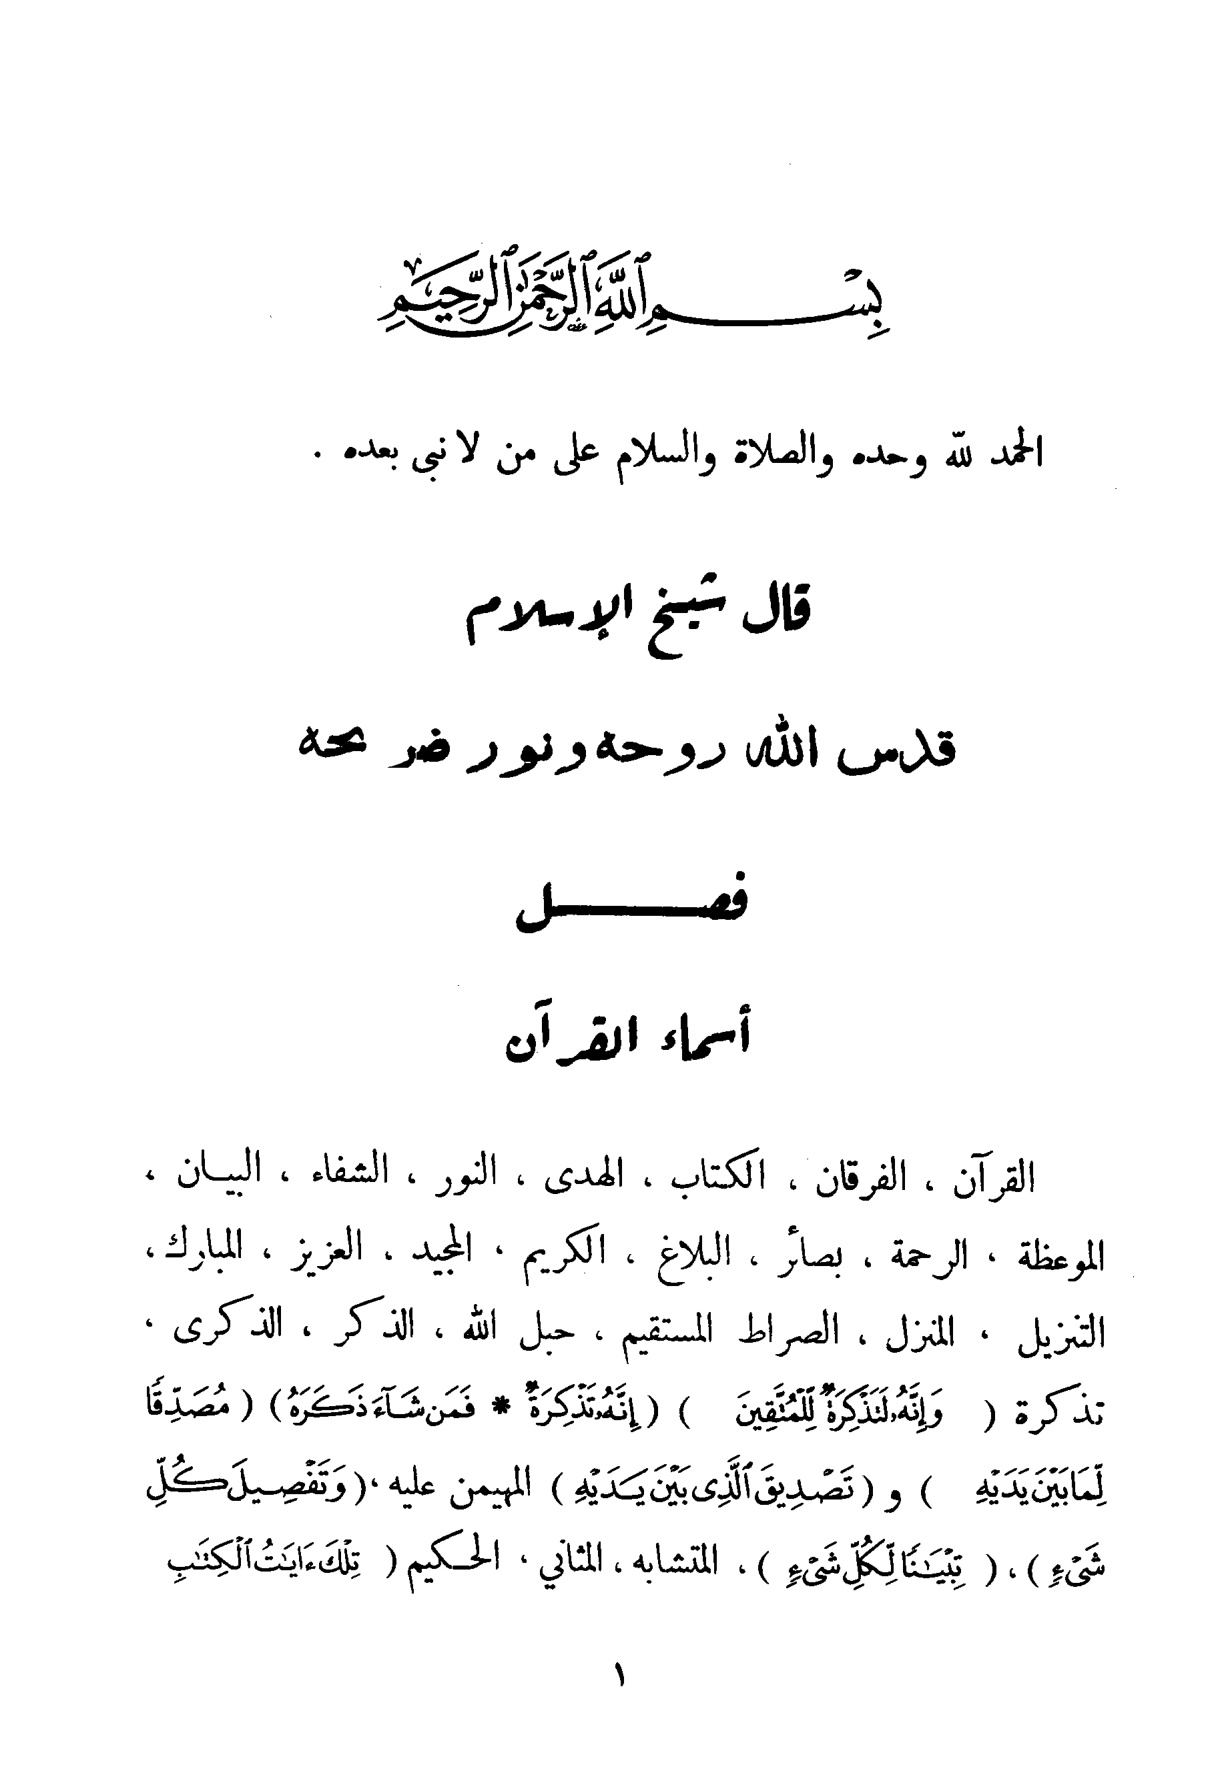 بِسْمِ ٱللَّهِ ٱلرَّحْمَٰنِ ٱلرَّحِيمِ
الحمد لله وحده والصلاة والسلام على من لا نبي بعده .
قال شيخ الإسلام
قدس الله روحه ونور ضريحه
فصل
أسماء القرآن
القرآن ، الفرقان ، الكتاب ، الهدى ، النور ، الشفاء ، البيان ،
الموعظة ، الرحمة ، بصائر ، البلاغ ، الكريم ، المجيد ، العزيز ، المبارك ،
التنزيل ، المنزل ، الصراط المستقيم ، حبل الله ، الذكر ، الذكرى ،
تذكرة ( وَإِنَّهُۥ لَتَذْكِرَةٌ لِّلْمُتَّقِينَ ) ( إِنَّهُۥ تَذْكِرَةٌ * فَمَن شَآءَ ذَكَرَهُۥ ) ( مُصَدِّقًا
لِّمَا بَيْنَ يَدَيْهِ ) و ( تَصْدِيقَ ٱلَّذِى بَيْنَ يَدَيْهِ ) المهيمن عليه ، ( وَتَفْصِيلَ كُلِّ
شَىْءٍ ) ، ( تِبْيَٰنًا لِّكُلِّ شَىْءٍ ) ، المتشابه ، المثاني ، الحكيم ( تِلْكَ ءَايَٰتُ ٱلْكِتَٰبِ
١